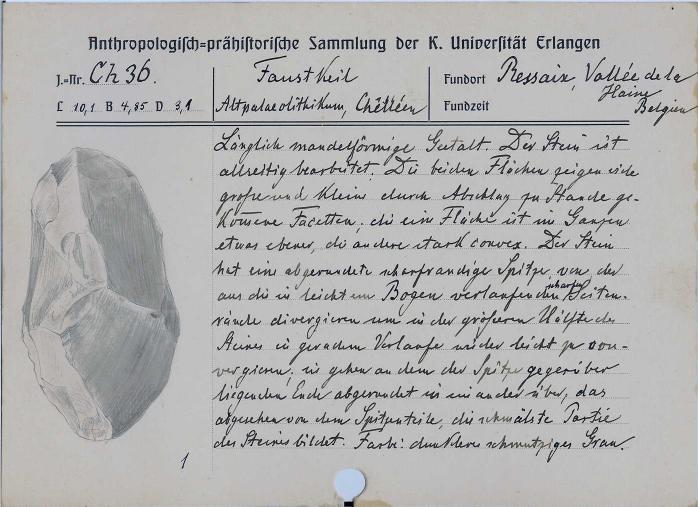 Anthropologisch=prähistorische Sammlung der K. Universität Erlangen
J.=Nr. Ch 36.
Faustkeil
Fundort Ressaix, Vallée de la
Haine
Belgien
L 10,1 B 4,85 D 3,1
Altpalaeolithikum, Chélléen
Fundzeit
Länglich mandelförmige Gestalt. Der Stein ist
allseitig bearbeitet. Die beiden Flächen zeigen viele
große und kleine durch Abschlag zu Stande ge-
kommene Facetten; die eine Fläche ist im Ganzen
etwas ebener, die andere stark convex. Der Stein
hat eine abgerundete scharfrandige Spitze, von der
aus die in leichtem Bogen verlaufenden scharfen Seiten-
ränder divergieren um in der größeren Hälfte des
Steines in geradem Verlaufe wieder leicht zu con-
vergieren; sie gehen an dem der Spitze gegenüber
liegenden Ende abgerundet in einander über, das
abgesehen von dem Spitzenteile, die schmälste Partie
des Steines bildet. Farbe: dunkleres schmutziges Grau.
1